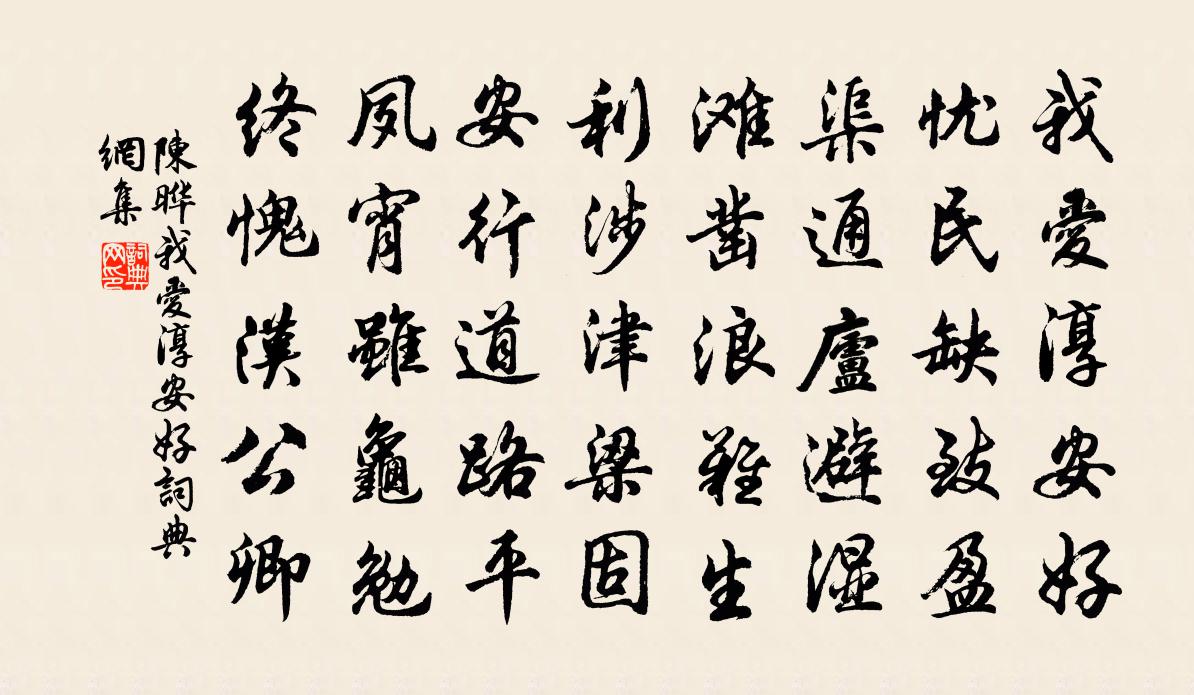 我愛淳安好
忧民缺致盈
渠通廬避湿
滩凿浪難生
利涉津梁固
安行道路平
夙宵雖龜勉
終愧漢公卿
陳晔我愛淳安好詞典
網集
詞典
网印